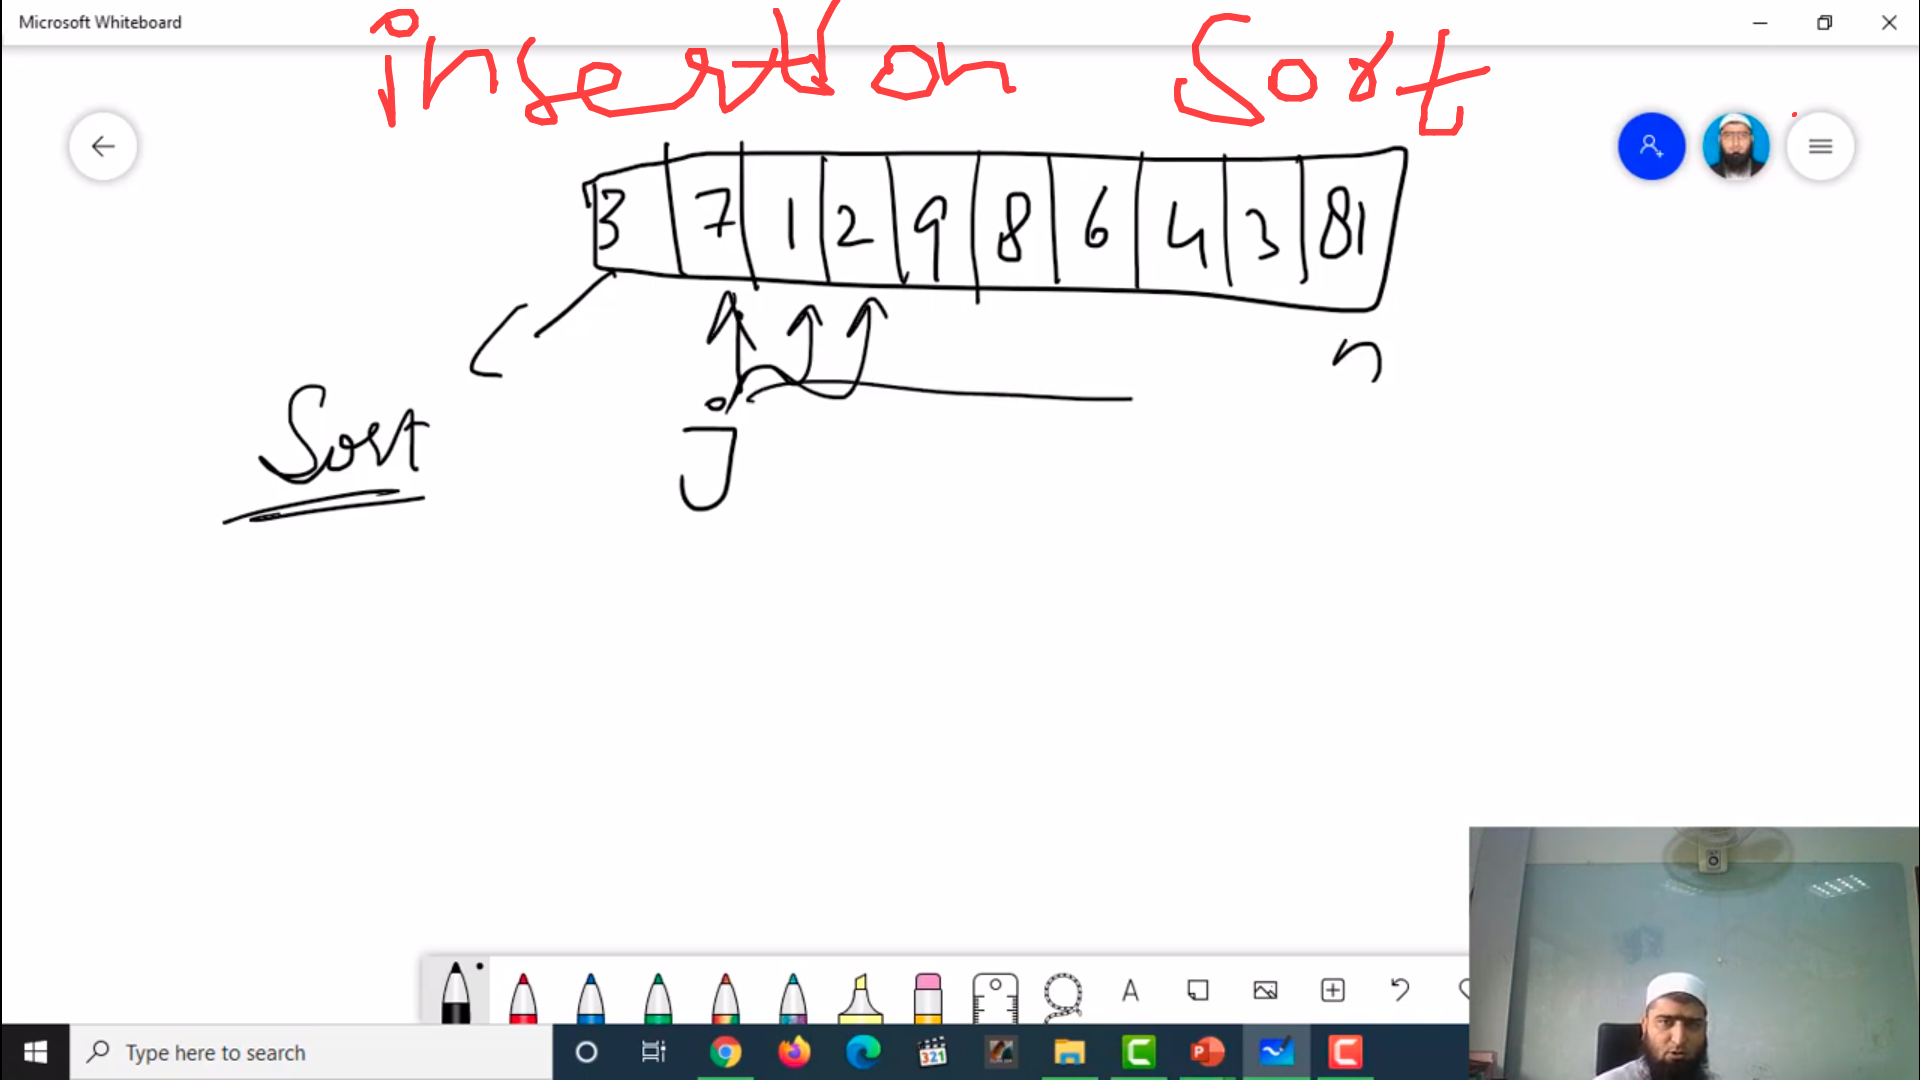 Microsoft Whiteboard
insertion Sort
3 7 1 2 9 8 6 4 3 81
n
Sort
J
A
321
Type here to search